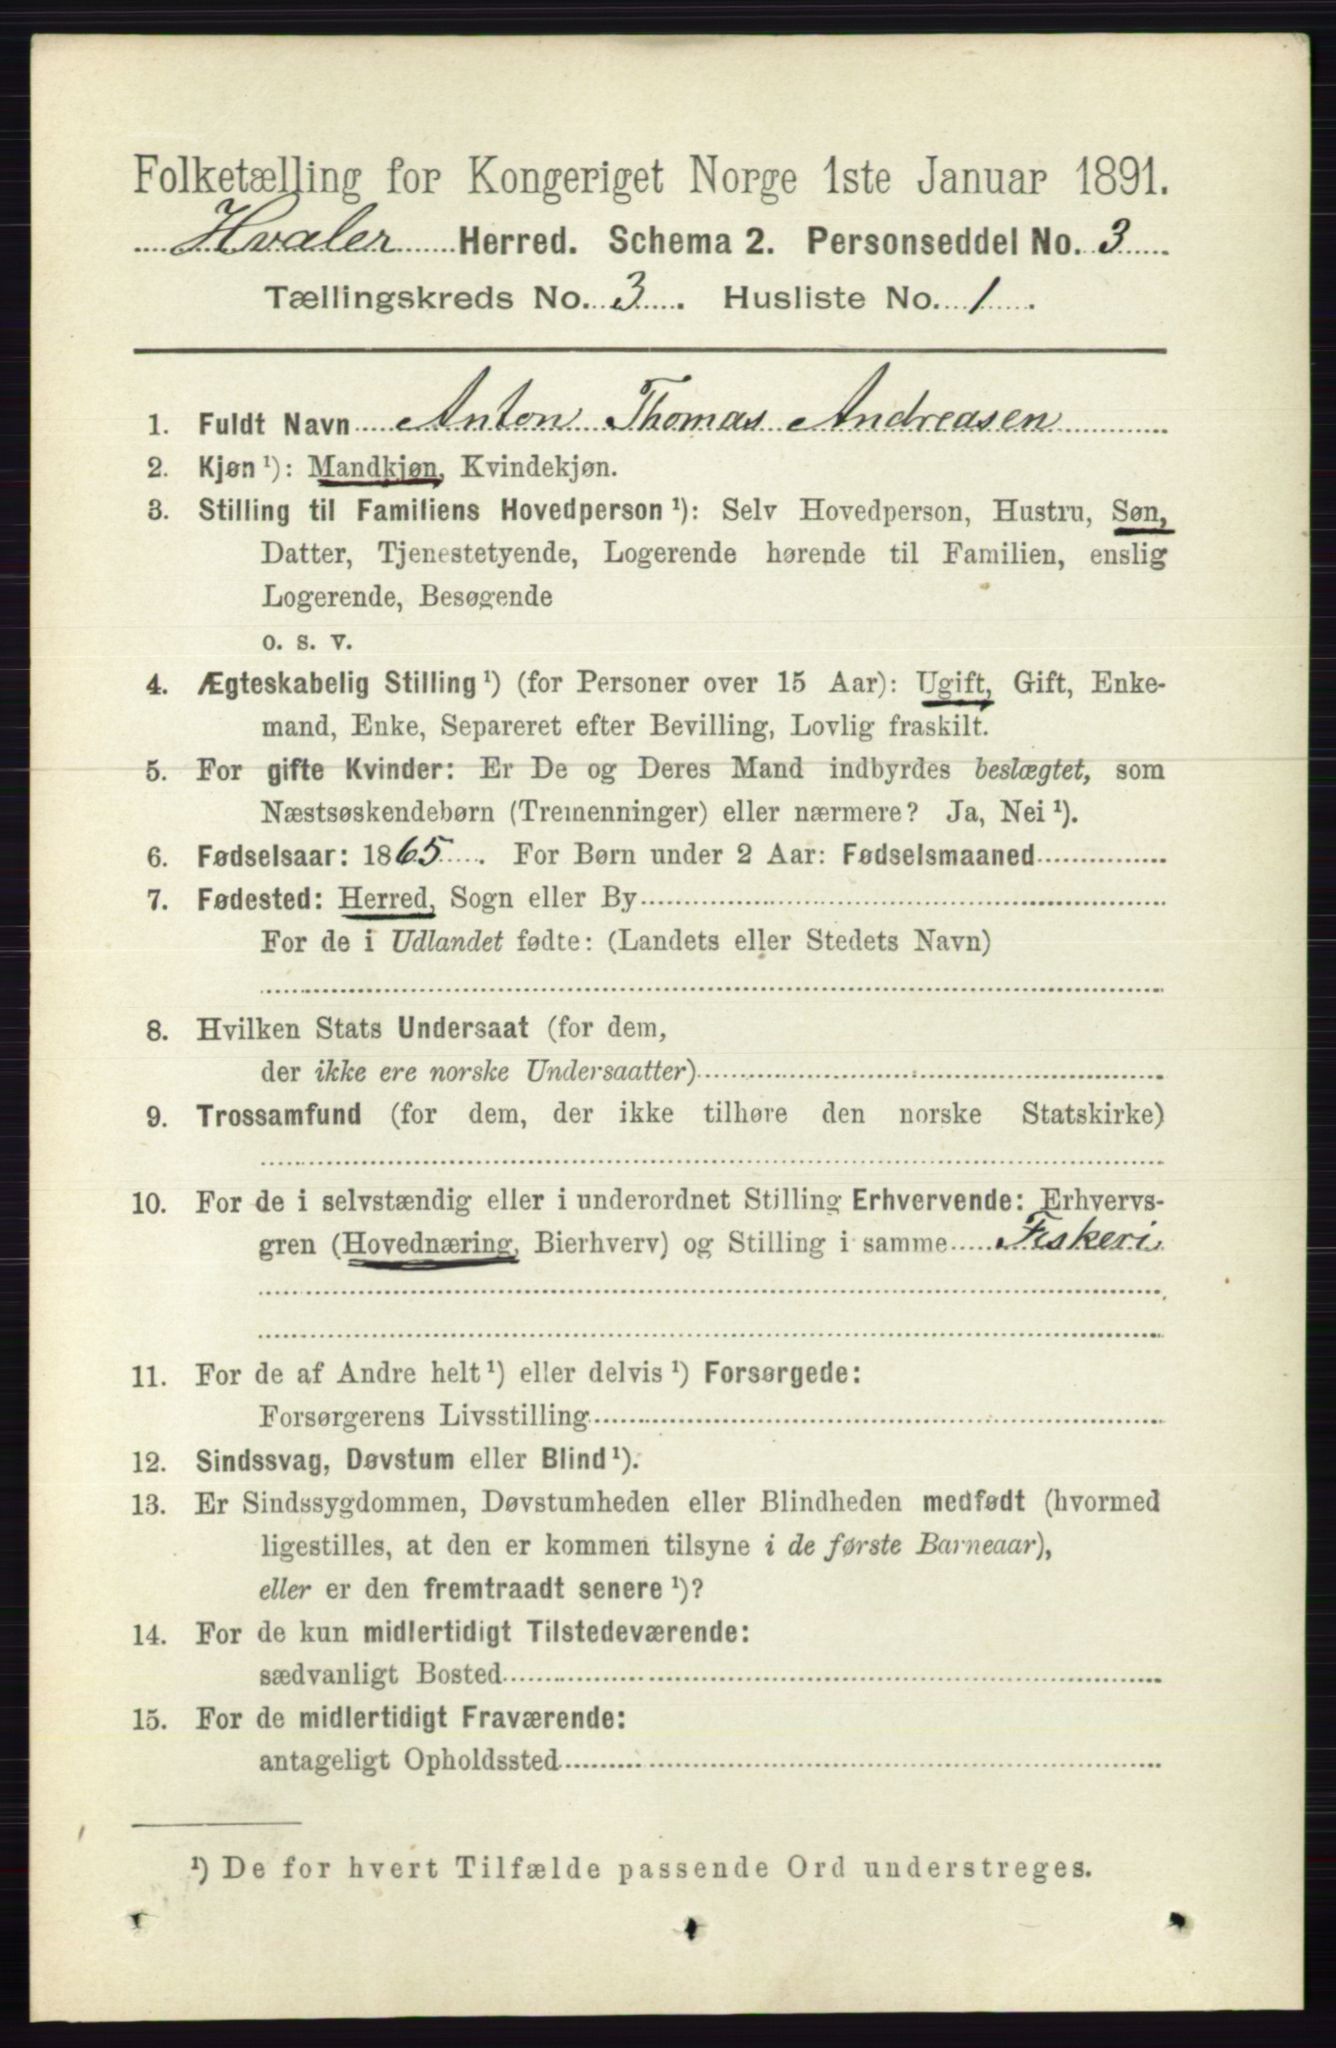 Folketælling for Kongeriget Norge 1ste Januar 1891.
Hvaler Herred. Schema 2. Personseddel No. 3
Tællingskreds No. 3. Husliste No. 1.
1. Fuldt Navn Anton Thomas Andreasen
2. Kjøn ¹): Mandkjøn, Kvindekjøn.
3. Stilling til Familiens Hovedperson ¹): Selv Hovedperson, Hustru, Søn,
Datter, Tjenestetyende, Logerende hørende til Familien, enslig
Logerende, Besøgende
o. s. v.
4. Ægteskabelig Stilling ¹) (for Personer over 15 Aar): Ugift, Gift, Enke-
mand, Enke, Separeret efter Bevilling, Lovlig fraskilt.
5. For gifte Kvinder: Er De og Deres Mand indbyrdes beslægtet, som
Næstsøskendebørn (Tremenninger) eller nærmere? Ja, Nei ¹).
6. Fødselsaar: 1865. For Børn under 2 Aar: Fødselsmaaned
7. Fødested: Herred, Sogn eller By
For de i Udlandet fødte: (Landets eller Stedets Navn)
8. Hvilken Stats Undersaat (for dem,
der ikke ere norske Undersaatter)
9. Trossamfund (for dem, der ikke tilhøre den norske Statskirke)
10. For de i selvstændig eller i underordnet Stilling Erhvervende: Erhvervs-
gren (Hovednæring, Bierhverv) og Stilling i samme Fiskeri
11. For de af Andre helt ¹) eller delvis ¹) Forsørgede:
Forsørgerens Livsstilling
12. Sindssvag, Døvstum eller Blind ¹).
13. Er Sindssygdommen, Døvstumheden eller Blindheden medfødt (hvormed
ligestilles, at den er kommen tilsyne i de første Barneaar),
eller er den fremtraadt senere ¹)?
14. For de kun midlertidigt Tilstedeværende:
sædvanligt Bosted
15. For de midlertidigt Fraværende:
antageligt Opholdssted
¹) De for hvert Tilfælde passende Ord understreges.